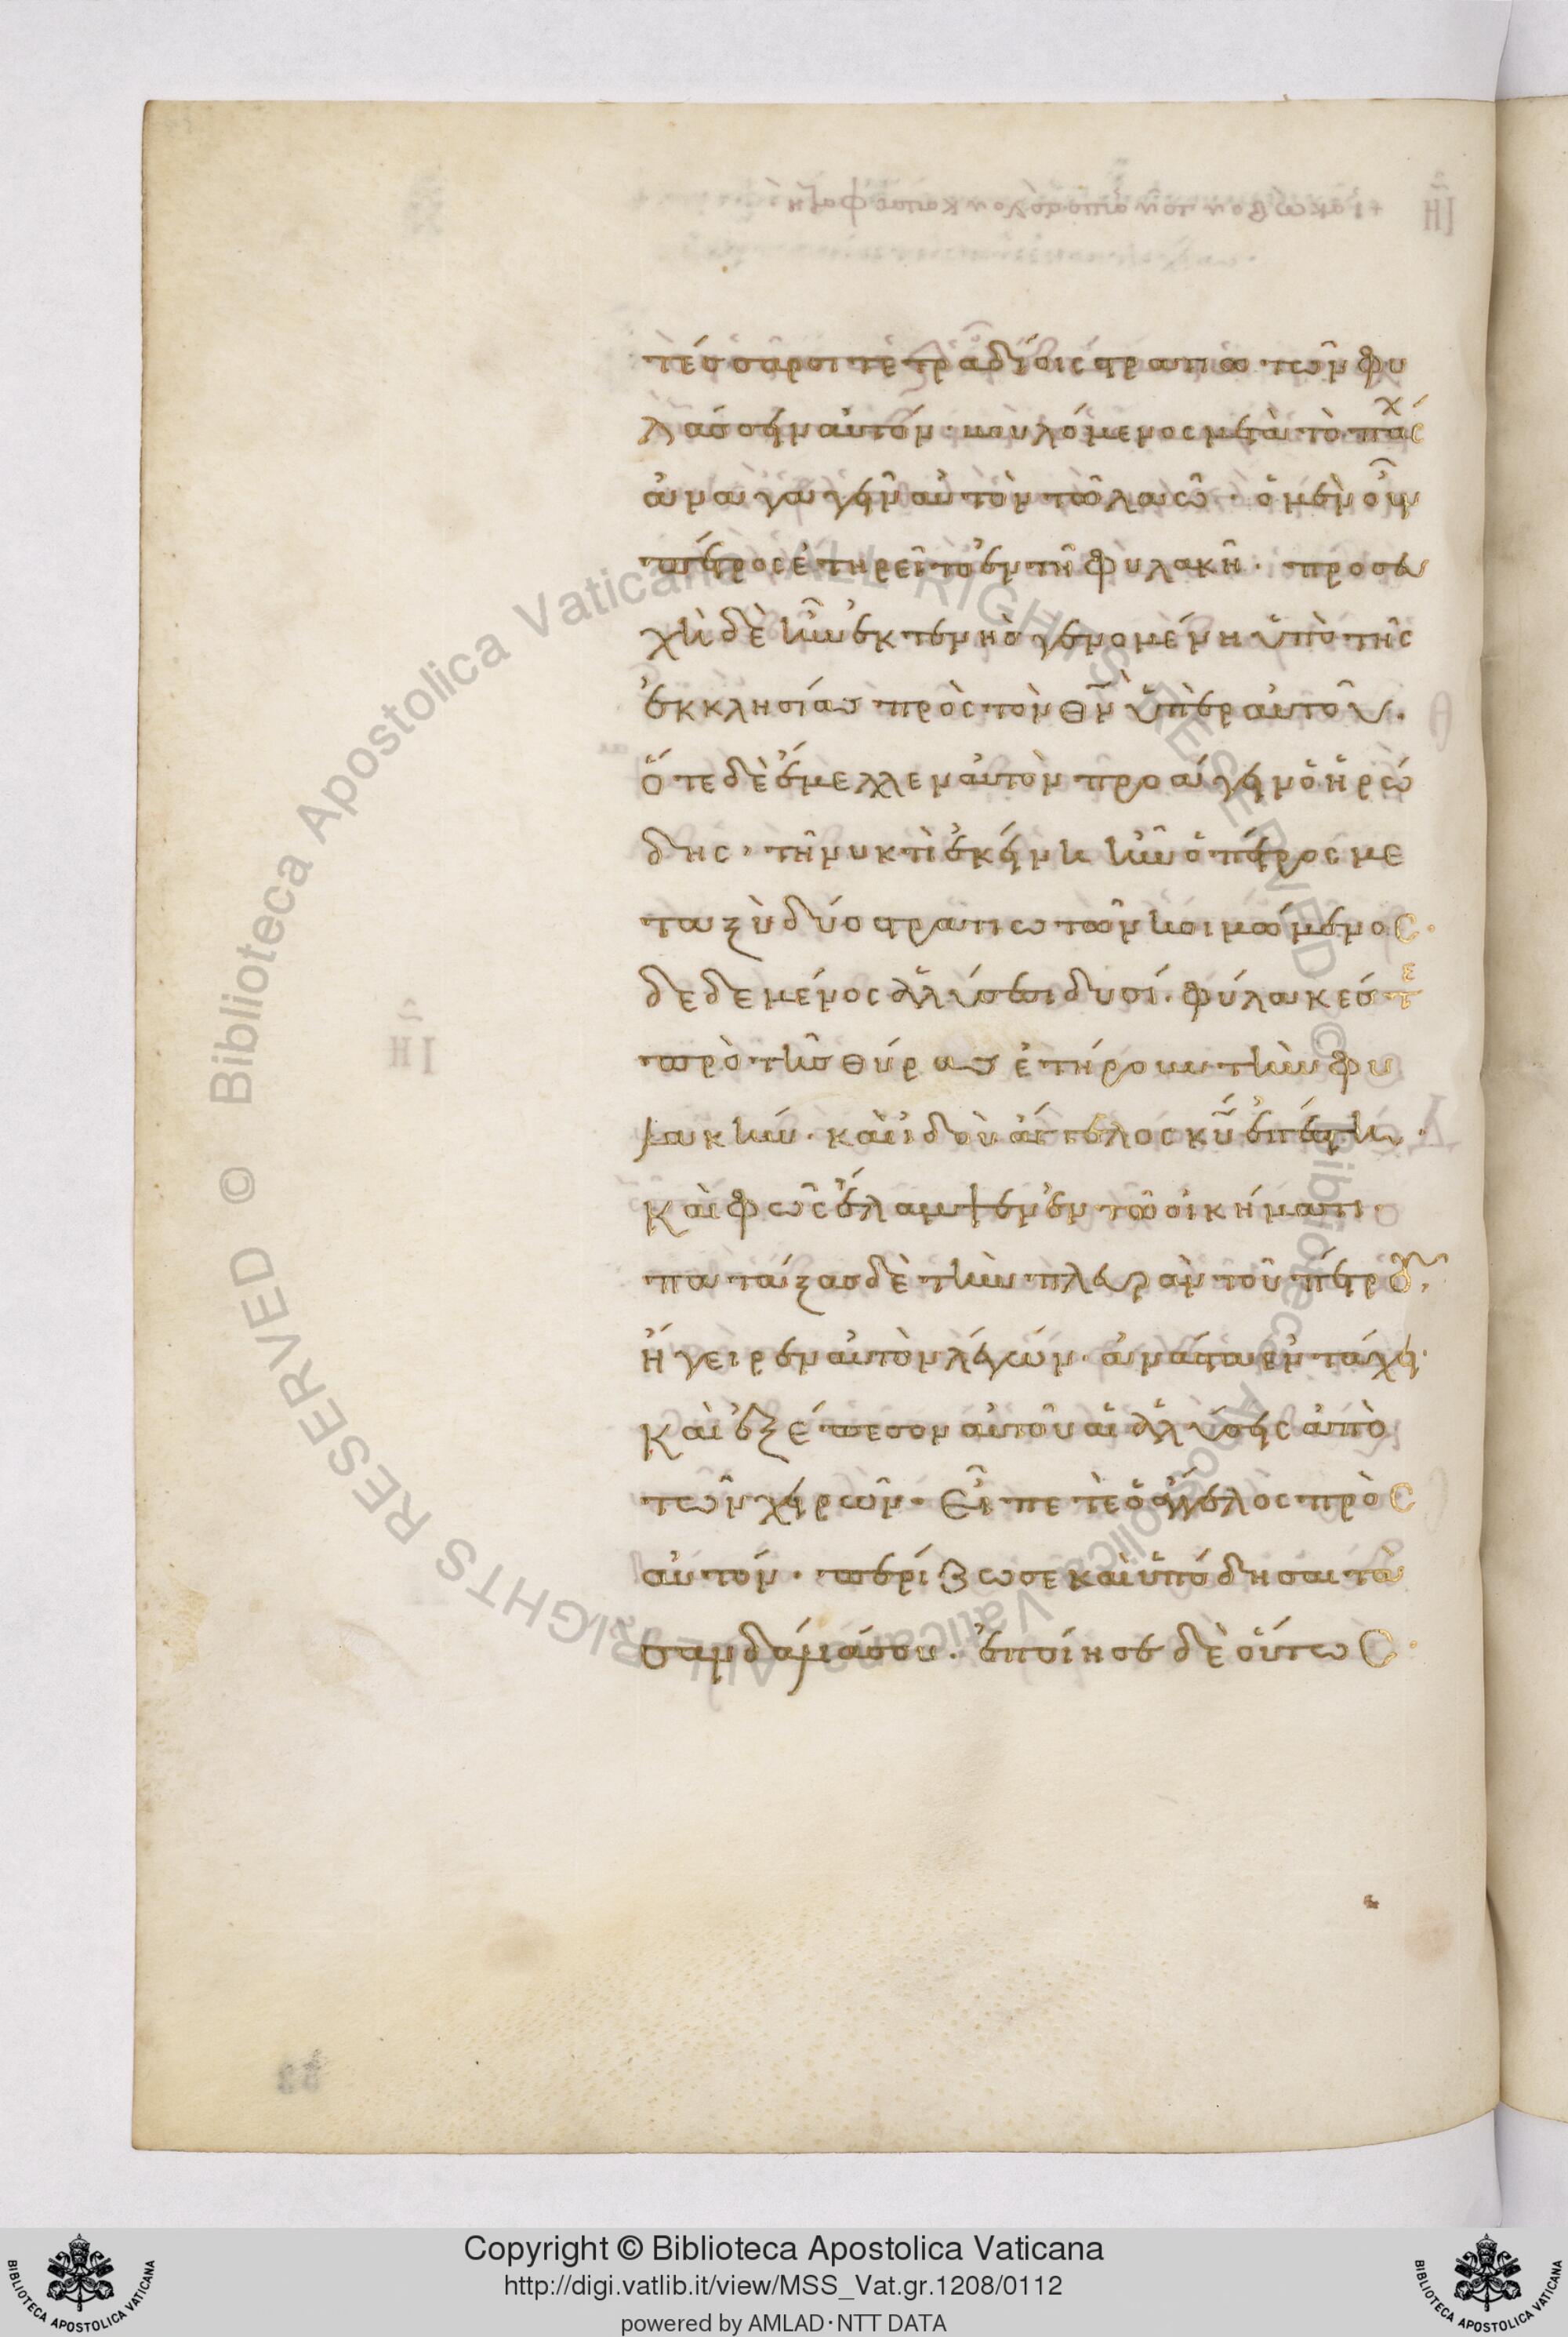 τέσσαρσι τετραδίοις στρατιωτῶν φυ
λάσσειν αὐτόν· βουλόμενος μετὰ τὸ πάσχ
ἀναγαγεῖν αὐτὸν τῶ λαῶ· ὁ μὲν οὖν
πέτρος ἐτηρεῖτο ἐν τῆ φυλακῆ· προσευ
χὴ δὲ ἦν ἐκτενὴσ γενομένη ὑπὸ τῆς
ἐκκλησίας πρὸς τὸν θν ὑπὲρ αὐτοῦ.
ὅτε δὲ ἔμελλεν αὐτὸν προάγειν ὁ ἡρώ
δης, τῆ νυκτὶ ἐκείνη ἦν ὁ πέτρος με
ταξὺ δύο στρατιωτῶν κοιμώμενος·
δεδεμένος ἁλύσεσι δυσί· φύλακέσ τε
πρὸ τῆσ θύρας ἐτήρουν τὴν φυ
λακήν· καὶ ἰδοὺ ἄγγελος κυ ἐπέστη·
καὶ φῶς ἔλαμψεν ἐν τῶ οἰκήματι·
πατάξασ δὲ τὴν πλευρὰν τοῦ πέτρου,
ἤγειρεν αὐτὸν λέγων· ἀνάστα ἐν τάχει·
καὶ ἐξέπεσον αὐτοῦ αἱ ἁλύσεις ἀπὸ
τῶν χειρῶν· εἶπέ τε ὁ ἄγγελος πρὸς
αὐτόν· περίζωσε καὶ ὑπόδησαι τὰ
σανδάλιά σου· ἐποίησε δὲ οὕτως·
Copyright © Biblioteca Apostolica Vaticana
http://digi.vatlib.it/view/MSS_Vat.gr.1208/0112
powered by AMLAD·NTT DATA